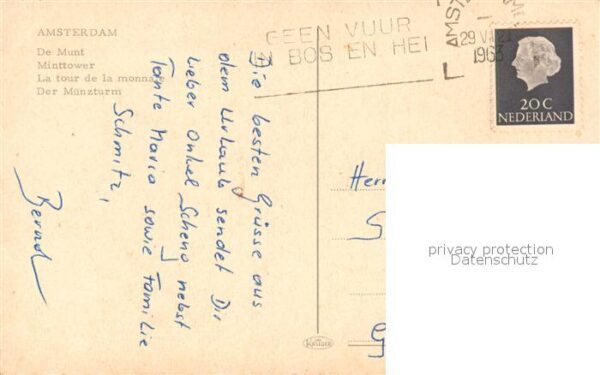 AMSTERDAM
De Munt
Minttower
La tour de la monnaie
Der Münzturm
GEEN VUUR
IN BOS EN HEI
AMST
29 VII 21
1963
20 C
NEDERLAND
Die besten Grüsse aus
dem Urlaub sendet Dir
lieber Onkel Scheng nebst
Tante Maria sowie Familie
Schmitz,
Bernd
Herr
S
G
privacy protection
Datenschutz